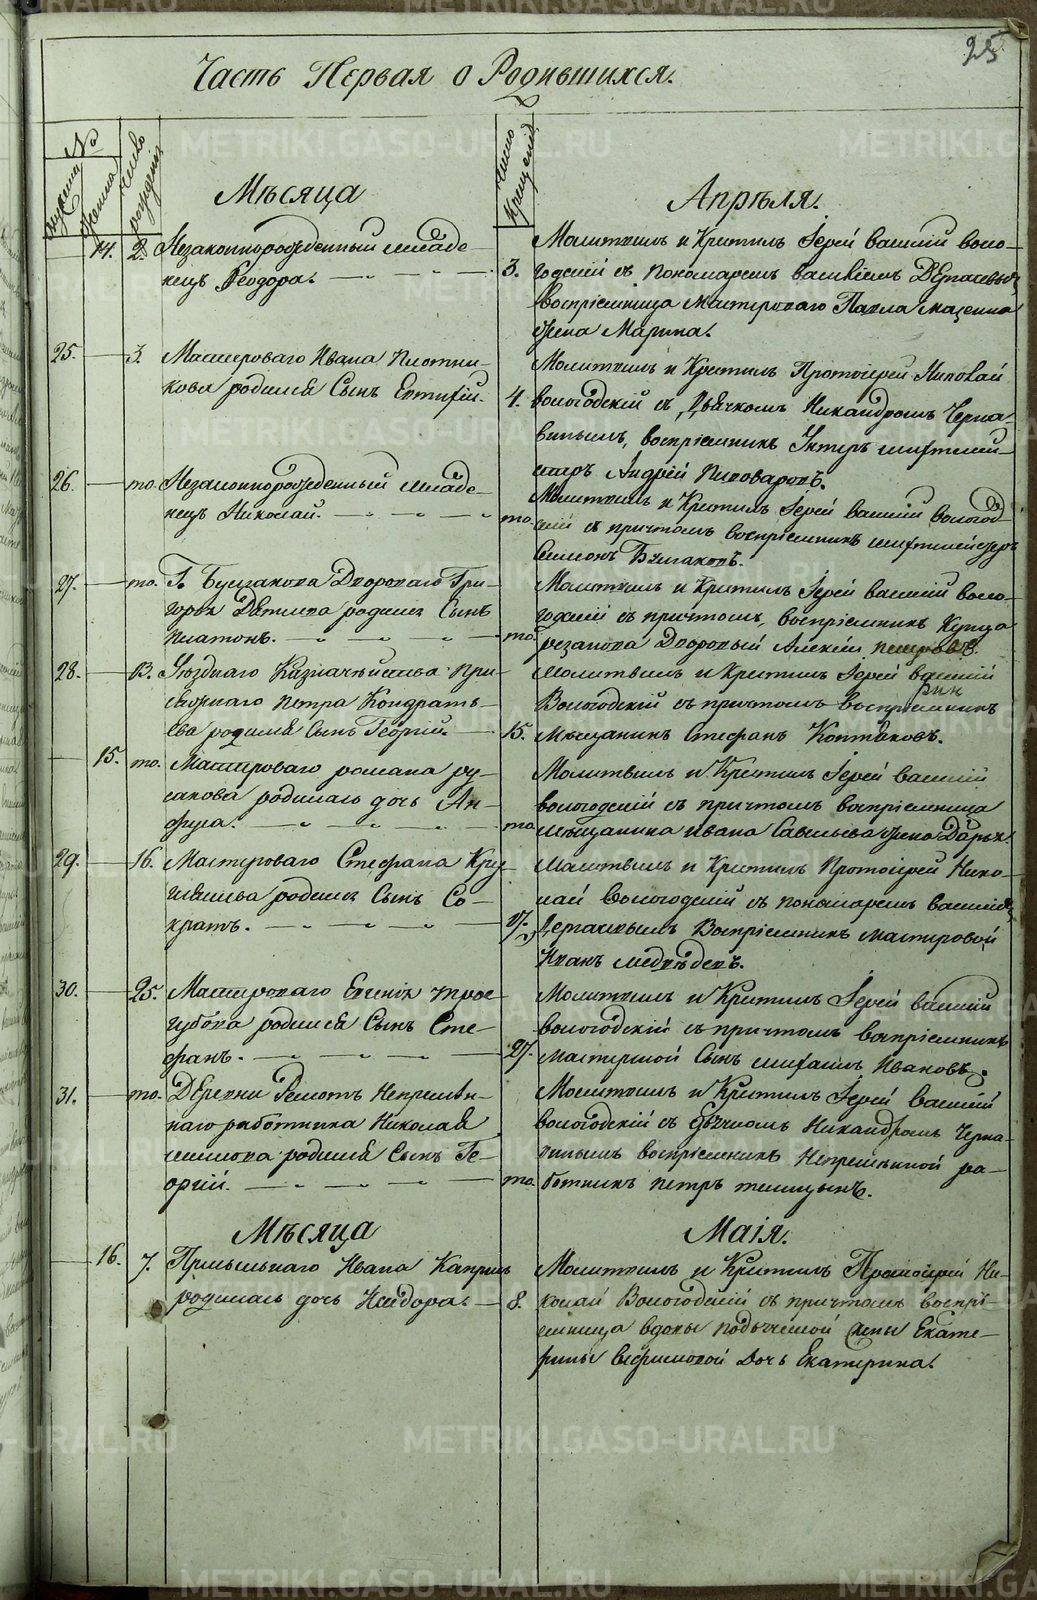 25
Часть Первая о Родившихся.
№
Число рождения
Число Крещенія
Мѣсяца
Апрѣля.
14. 2. Незаконнорожденный младе-
нецъ Ѳеодора.
3.
Молитвилъ и Крестилъ Іерей Василій Воло-
годскій съ пономаремъ Василіемъ
воспріемница Мастероваго Павла
жена Марина.
25. 3. Мастероваго Ивана Плотни-
кова родился Сынъ Евтифій.
4.
Молитвилъ и Крестилъ Протоіерей Николай
Вологодскій съ Дьячкомъ Никандромъ Черна-
виным, воспріемникъ Унтеръ шихтмей-
стеръ Андрей Пивоваровъ.
26. то. Незаконнорожденный младе-
нецъ Николай.
то.
Молитвилъ и Крестилъ Іерей Василій Вологод-
скій съ причтомъ воспріемникъ шихтмейстеръ
Симіонъ Булгаковъ.
27. то. Г. Булгакова Двороваго Гри-
горья родился Сынъ
Платонъ.
то.
Молитвилъ и Крестилъ Іерей Василій Воло-
годскій съ причтомъ, воспріемникъ Купца
Резанова Дворовый Алексѣй
28. 13. Уѣзднаго Казначейства При-
сяжнаго Петра Кондрать-
ева родился Сынъ Георгій.
15.
Молитвилъ и Крестилъ Іерей Василій
Вологодскій съ причтомъ воспріемникъ
Мѣщанинъ Стефанъ Коптяковъ.
15. то. Мастероваго Романа Ру-
сакова родилась дочь Ан-
фуса.
то.
Молитвилъ и Крестилъ Іерей Василій
Вологодскій съ причтомъ воспріемница
Мѣщанина Ивана Савельева жена Дарья.
29. 16. Мастероваго Стефана
родился Сынъ Со-
кратъ.
17.
Молитвилъ и Крестилъ Протоіерей Нико-
лай Вологодскій съ пономаремъ Василіемъ
Воспріемникъ Мастеровой
Иванъ Медвѣдевъ.
30. 25. Мастероваго Евгенія Трое-
губова родился Сынъ Сте-
фанъ.
27.
Молитвилъ и Крестилъ Іерей Василій
Вологодскій съ причтомъ воспріемникъ
Мастерской Сынъ Михаилъ Ивановъ.
31. то. Деревни Решотъ Непремѣн-
наго работника Николая
родился Сынъ Ге-
оргій.
то.
Молитвилъ и Крестилъ Іерей Василій
Вологодскій съ Дьячкомъ Никандромъ Черна-
винымъ воспріемникъ Непремѣнной ра-
ботникъ Петръ Телицынъ.
Мѣсяца
Маія.
16. 7. Ивана
родилась дочь Исидора.
8.
Молитвилъ и Крестилъ Протоіерей Ни-
колай Вологодскій съ причтомъ воспрі-
емница вдовы жены Екате-
рины дочь Екатерина.
METRIKI.GASO-URAL.RU